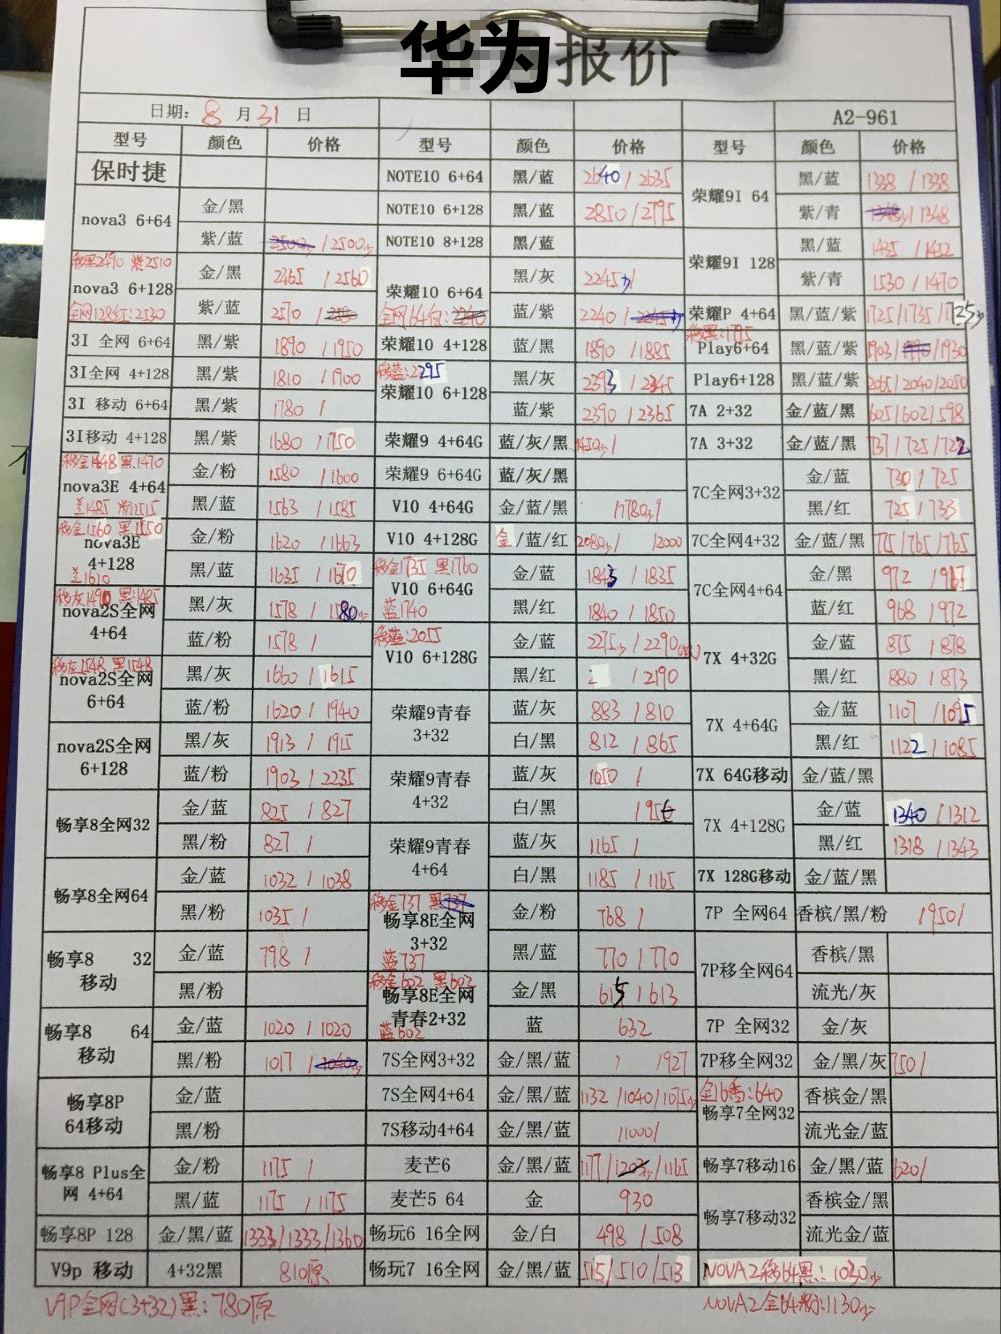 华为报价
日期: 8 月 31 日 A2-961
型号 颜色 价格 型号 颜色 价格 型号 颜色 价格
保时捷 NOTE10 6+64 黑/蓝 2640/2635 荣耀9I 64 黑/蓝 1338/1338
nova3 6+64 金/黑 NOTE10 6+128 黑/蓝 2850/2795 紫/青 /1348
紫/蓝 /2500 NOTE10 8+128 黑/蓝 荣耀9I 128 黑/蓝 1435/1452
移黑2490 紫2510
nova3 6+128 金/黑 2465/2560 荣耀10 6+64 黑/灰 2245/ 紫/青 1530/1470
全网128红:2530 紫/蓝 2510/ 蓝/紫 2240/ 荣耀P 4+64 黑/蓝/紫 1725/1735/1725
移黑:1715
3I 全网 6+64 黑/紫 1890/1950 荣耀10 4+128 蓝/黑 1890/1885 Play6+64 黑/蓝/紫 /1930
移蓝:2295
3I全网 4+128 黑/紫 1810/1900 荣耀10 6+128 黑/灰 2393/2345 Play6+128 黑/蓝/紫 2065/2040/2050
3I 移动 6+64 黑/紫 1780/ 蓝/紫 2390/2365 7A 2+32 金/蓝/黑 605/602/598
3I移动 4+128 黑/紫 1680/1750 荣耀9 4+64G 蓝/灰/黑 7A 3+32 金/蓝/黑 737/725/722
移金1448 黑:1470
nova3E 4+64 金/粉 1580/1600 荣耀9 6+64G 蓝/灰/黑 7C全网3+32 金/蓝 730/725
兰1485 粉1515 黑/蓝 1563/1585 V10 4+64G 金/蓝/黑 /1780/ 黑/红 725/733
移金1560 黑1550
nova3E 4+128 金/粉 1620/1663 V10 4+128G 金/蓝/红 2080/ /2000 7C全网4+32 金/蓝/黑 775/765/765
兰1610 黑/蓝 1635/1670 移金1735 黑1760
V10 6+64G 金/蓝 1843/1835 7C全网4+64 金/黑 972/967
移灰1490 黑:1485
nova2S全网 4+64 黑/灰 1578/1580 蓝1740 黑/红 1840/1850 蓝/红 968/972
蓝/粉 1578/ 移蓝:2055
V10 6+128G 金/蓝 2275/2290 7X 4+32G 金/蓝 875/878
移灰1548 黑1548
nova2S全网 6+64 黑/灰 1660/1615 黑/红 /2190 黑/红 880/873
蓝/粉 1620/1940 荣耀9青春 3+32 蓝/灰 883/810 7X 4+64G 金/蓝 1107/1095
nova2S全网 6+128 黑/灰 1913/1915 白/黑 812/865 黑/红 1122/1085
蓝/粉 1903/2235 荣耀9青春 4+32 蓝/灰 1050/ 7X 64G移动 金/蓝/黑
畅享8全网32 金/蓝 825/827 白/黑 7X 4+128G 金/蓝 1340/1312
黑/粉 827/ 荣耀9青春 4+64 蓝/灰 1165/ 黑/红 1318/1343
畅享8全网64 金/蓝 1032/1038 白/黑 1185/1165 7X 128G移动 金/蓝/黑
移金737
黑/粉 1035/ 畅享8E全网 3+32 金/粉 768/ 7P 全网64 香槟/黑/粉 1950/
畅享8 32 移动 金/蓝 798/ 蓝737 黑/蓝 770/770 7P移全网64 香槟/黑
移金602 黑602
黑/粉 畅享8E全网 青春2+32 金/黑 615/613 流光/灰
畅享8 64 移动 金/蓝 1020/1020 蓝602 蓝 632 7P 全网32 金/灰
黑/粉 1017/ 7S全网3+32 金/黑/蓝 /927 7P移全网32 金/黑/灰 750/
畅享8P 64移动 金/蓝 7S全网4+64 金/黑/蓝 1132/1040/1075 全16香:640
畅享7全网32 香槟金/黑
黑/粉 7S移动4+64 金/黑/蓝 /1000/ 流光金/蓝
畅享8 Plus全网 4+64 金/粉 1175/ 麦芒6 金/黑/蓝 1177/ /1165 畅享7移动16 金/黑/蓝 620/
黑/蓝 1175/1175 麦芒5 64 金 930 畅享7移动32 香槟金/黑
畅享8P 128 金/黑/蓝 1333/1333/1360 畅玩6 16全网 金/白 498/508 流光金/蓝
V9p 移动 4+32黑 810原 畅玩7 16全网 金/黑/蓝 515/510/513 NOVA2移64黑:1030
V9P全网(3+32)黑:780原 NOVA2全64粉:1130